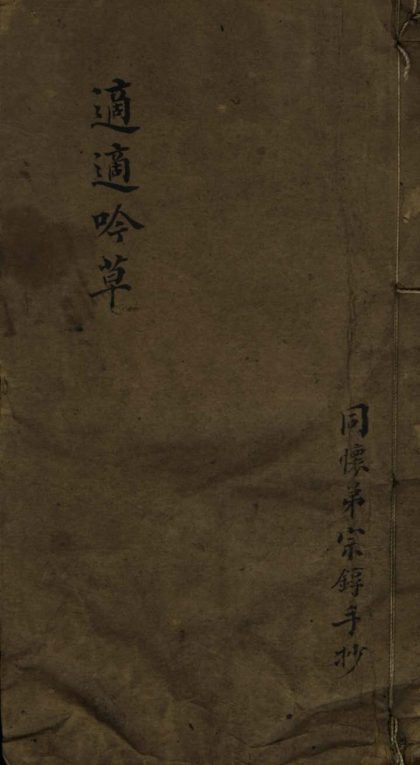 適適吟草
同懷弟宗錞手抄